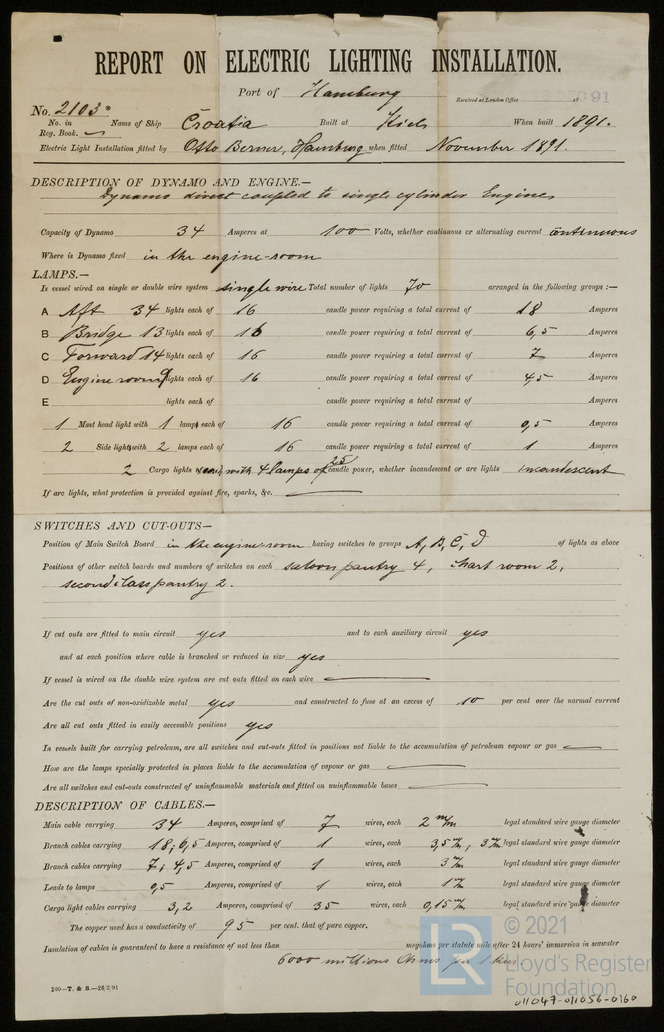 REPORT ON ELECTRIC LIGHTING INSTALLATION.
Port of Hamburg Received at London Office 18 91
No. 2103
No. in Reg. Book. Name of Ship Croatia Built at Kiel When built 1891.
Electric Light Installation fitted by Otto Berner, Hamburg when fitted November 1891.
DESCRIPTION OF DYNAMO AND ENGINE.—
Dynamo direct coupled to single cylinder Engine
Capacity of Dynamo 34 Amperes at 100 Volts, whether continuous or alternating current continuous
Where is Dynamo fixed in the engine-room
LAMPS.—
Is vessel wired on single or double wire system single wire Total number of lights 70 arranged in the following groups :—
A Aft 34 lights each of 16 candle power requiring a total current of 18 Amperes
B Bridge 13 lights each of 16 candle power requiring a total current of 6,5 Amperes
C Forward 14 lights each of 16 candle power requiring a total current of 7 Amperes
D Engine room 9 lights each of 16 candle power requiring a total current of 4,5 Amperes
E lights each of candle power requiring a total current of Amperes
1 Mast head light with 1 lamps each of 16 candle power requiring a total current of 0,5 Amperes
2 Side lights with 2 lamps each of 16 candle power requiring a total current of 1 Amperes
2 Cargo lights each with 4 lamps of 25 candle power, whether incandescent or arc lights incandescent
If arc lights, what protection is provided against fire, sparks, &c.
SWITCHES AND CUT-OUTS—
Position of Main Switch Board in the engine-room having switches to groups A, B, C, D of lights as above
Positions of other switch boards and numbers of switches on each saloon pantry 4, chart room 2,
second class pantry 2.
If cut outs are fitted to main circuit yes and to each auxiliary circuit yes
and at each position where cable is branched or reduced in size yes
If vessel is wired on the double wire system are cut outs fitted on each wire
Are the cut outs of non-oxidizable metal yes and constructed to fuse at an excess of 10 per cent over the normal current
Are all cut outs fitted in easily accessible positions yes
In vessels built for carrying petroleum, are all switches and cut-outs fitted in positions not liable to the accumulation of petroleum vapour or gas
How are the lamps specially protected in places liable to the accumulation of vapour or gas
Are all switches and cut-outs constructed of uninflammable materials and fitted on uninflammable bases
DESCRIPTION OF CABLES.—
Main cable carrying 34 Amperes, comprised of 7 wires, each 2 m/m legal standard wire gauge diameter
Branch cables carrying 18; 6,5 Amperes, comprised of 1 wires, each 3,5 m/m, 3 m/m legal standard wire gauge diameter
Branch cables carrying 7; 4,5 Amperes, comprised of 1 wires, each 3 m/m legal standard wire gauge diameter
Leads to lamps 0,5 Amperes, comprised of 1 wires, each 1 m/m legal standard wire gauge diameter
Cargo light cables carrying 3,2 Amperes, comprised of 35 wires, each 0,15 m/m legal standard wire gauge diameter
The copper used has a conductivity of 95 per cent. that of pure copper.
Insulation of cables is guaranteed to have a resistance of not less than megohms per statute mile after 24 hours' immersion in seawater
6000 millions Ohms per 1 km
200—T. & S.—26/2/91
LR © 2021
Lloyd's Register
Foundation
011047-011056-0160